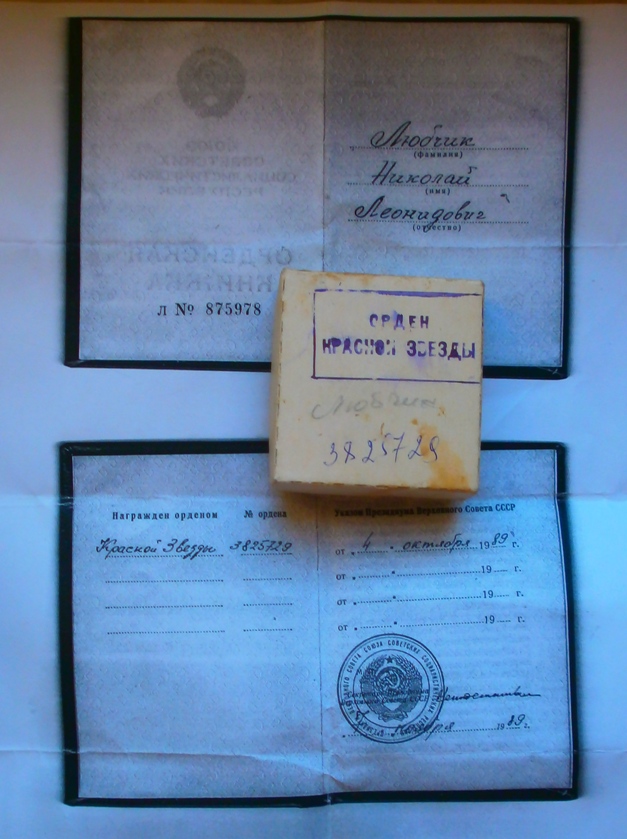 Любчик
(фамилия)
Николай
(имя)
Леонидович
(отчество)
СОЮЗ
СОВЕТСКИХ
СОЦИАЛИСТИЧЕСКИХ
РЕСПУБЛИК
ОРДЕНСКАЯ
КНИЖКА
Л № 875978
ОРДЕН
КРАСНОЙ ЗВЕЗДЫ
Любчик
3825729
Награжден орденом № ордена
Красной Звезды 3825729
Указом Президиума Верховного Совета СССР
от „ 4 “ октября 1989 г.
от „ “ 19 г.
от „ “ 19 г.
от „ “ 19 г.
1989 г.